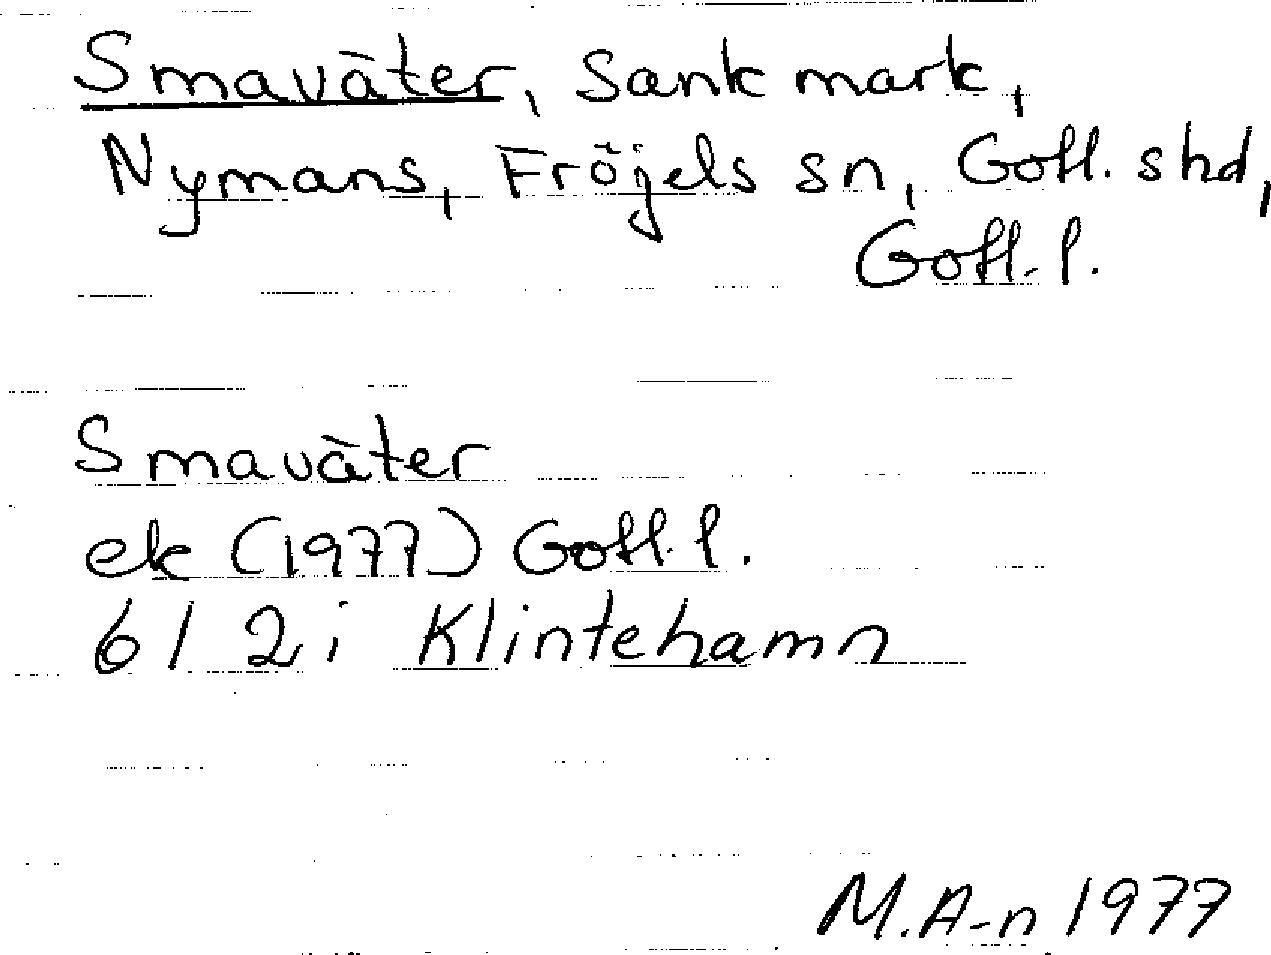 Smaväter, Sank mark,
Nymans, Fröjels sn, Gotl. shd,
Gotl. l.
Smaväter
ek (1977) Gotl. l.
6I 2i Klintehamn
M.A-n 1977